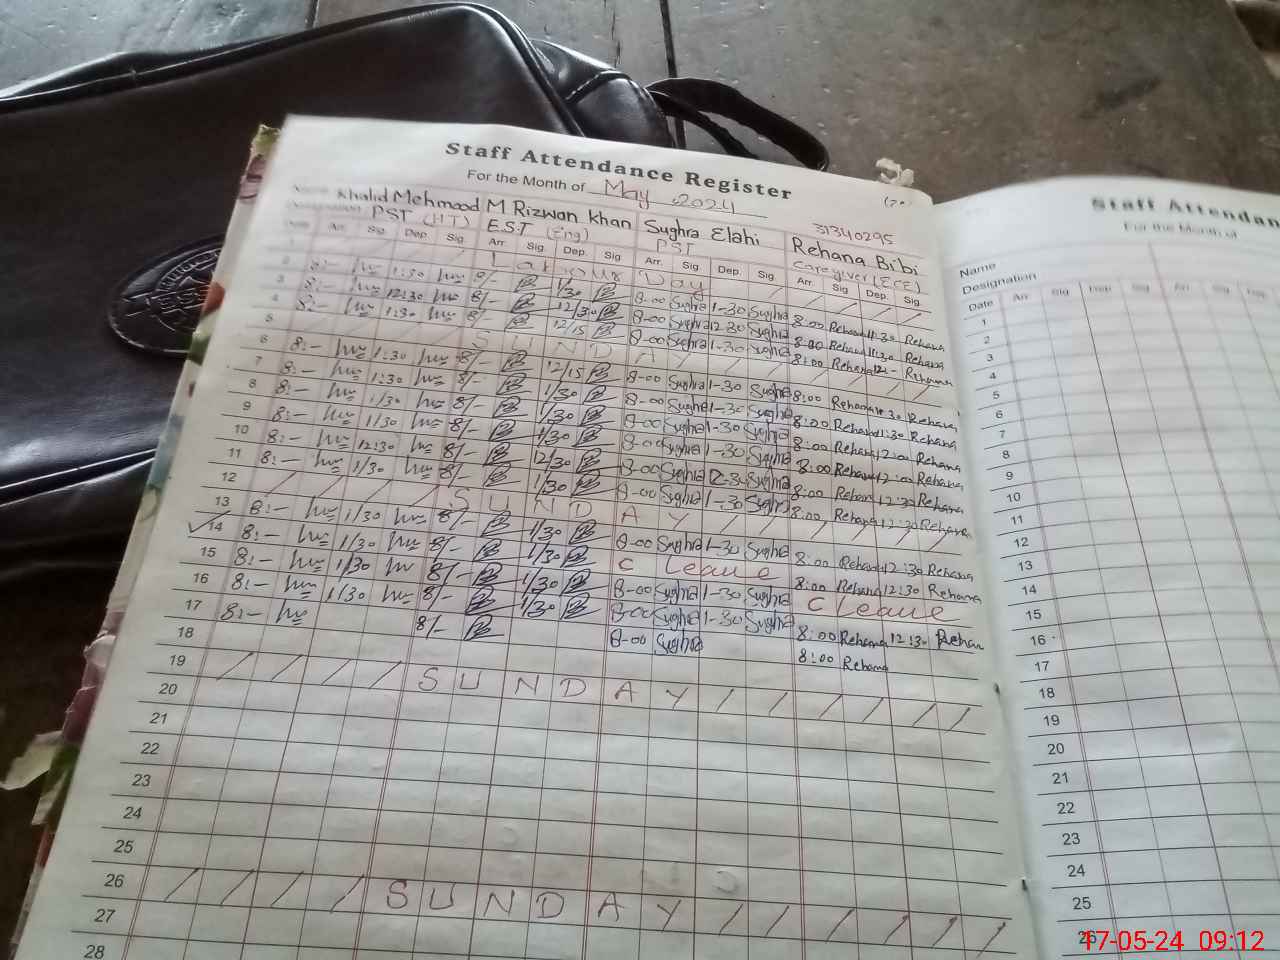 Staff Attendance Register
For the Month of May 2024
Name Khalid Mehmood M Rizwan khan Sughra Elahi 31340295 Rehana Bibi
Designation PST (HT) E.S.T (Eng) PST Caregiver (ECE)
Date Arr. Sig. Dep. Sig. Arr. Sig. Dep. Sig. Arr. Sig. Dep. Sig. Arr. Sig. Dep. Sig.
1 Labour Day
2 8:- 1:30 8/- 1/30 8-00 Sughra 1-30 Sughra 8:00 Rehana 11:30 Rehana
3 8:- 12:30 8/- 12/30 8-00 Sughra 12-30 Sughra 8:00 Rehana 11:30 Rehana
4 8:- 1:30 8/- 12/15 8-00 Sughra 1-30 Sughra 8:00 Rehana 12- Rehana
5 SUNDAY
6 8:- 1:30 8/- 12/15 8-00 Sughra 1-30 Sughra 8:00 Rehana 11:30 Rehana
7 8:- 1:30 8/- 1/30 8-00 Sughra 1-30 Sughra 8:00 Rehana 11:30 Rehana
8 8:- 1/30 8/- 1/30 8-00 Sughra 1-30 Sughra 8:00 Rehana 12:00 Rehana
9 8:- 1/30 8/- 1/30 8-00 Sughra 1-30 Sughra 8:00 Rehana 12:00 Rehana
10 8:- 12:30 8/- 12/30 8-00 Sughra 12-30 Sughra 8:00 Rehana 12:30 Rehana
11 8:- 1/30 8/- 1/30 8-00 Sughra 1-30 Sughra 8:00 Rehana 12:30 Rehana
12 SUNDAY
13 8:- 1/30 8/- 1/30 8-00 Sughra 1-30 Sughra 8:00 Rehana 12:30 Rehana
14 8:- 1/30 8/- 1/30 C Leave 8:00 Rehana 12:30 Rehana
15 8:- 1/30 8/- 1/30 8-00 Sughra 1-30 Sughra C leave
16 8:- 1/30 8/- 1/30 8-00 Sughra 1-30 Sughra 8:00 Rehana 12:30 Rehan
17 8:- 8/- 8-00 Sughra 8:00 Rehana
18
19 SUNDAY
20
21
22
23
24
25
26 SUNDAY
27
28
Staff Attendan
For the Month of
Name
Designation
Date Arr. Sig. Dep. Sig. Arr. Sig. Dep.
1
2
3
4
5
6
7
8
9
10
11
12
13
14
15
16
17
18
19
20
21
22
23
24
25
26
17-05-24 09:12